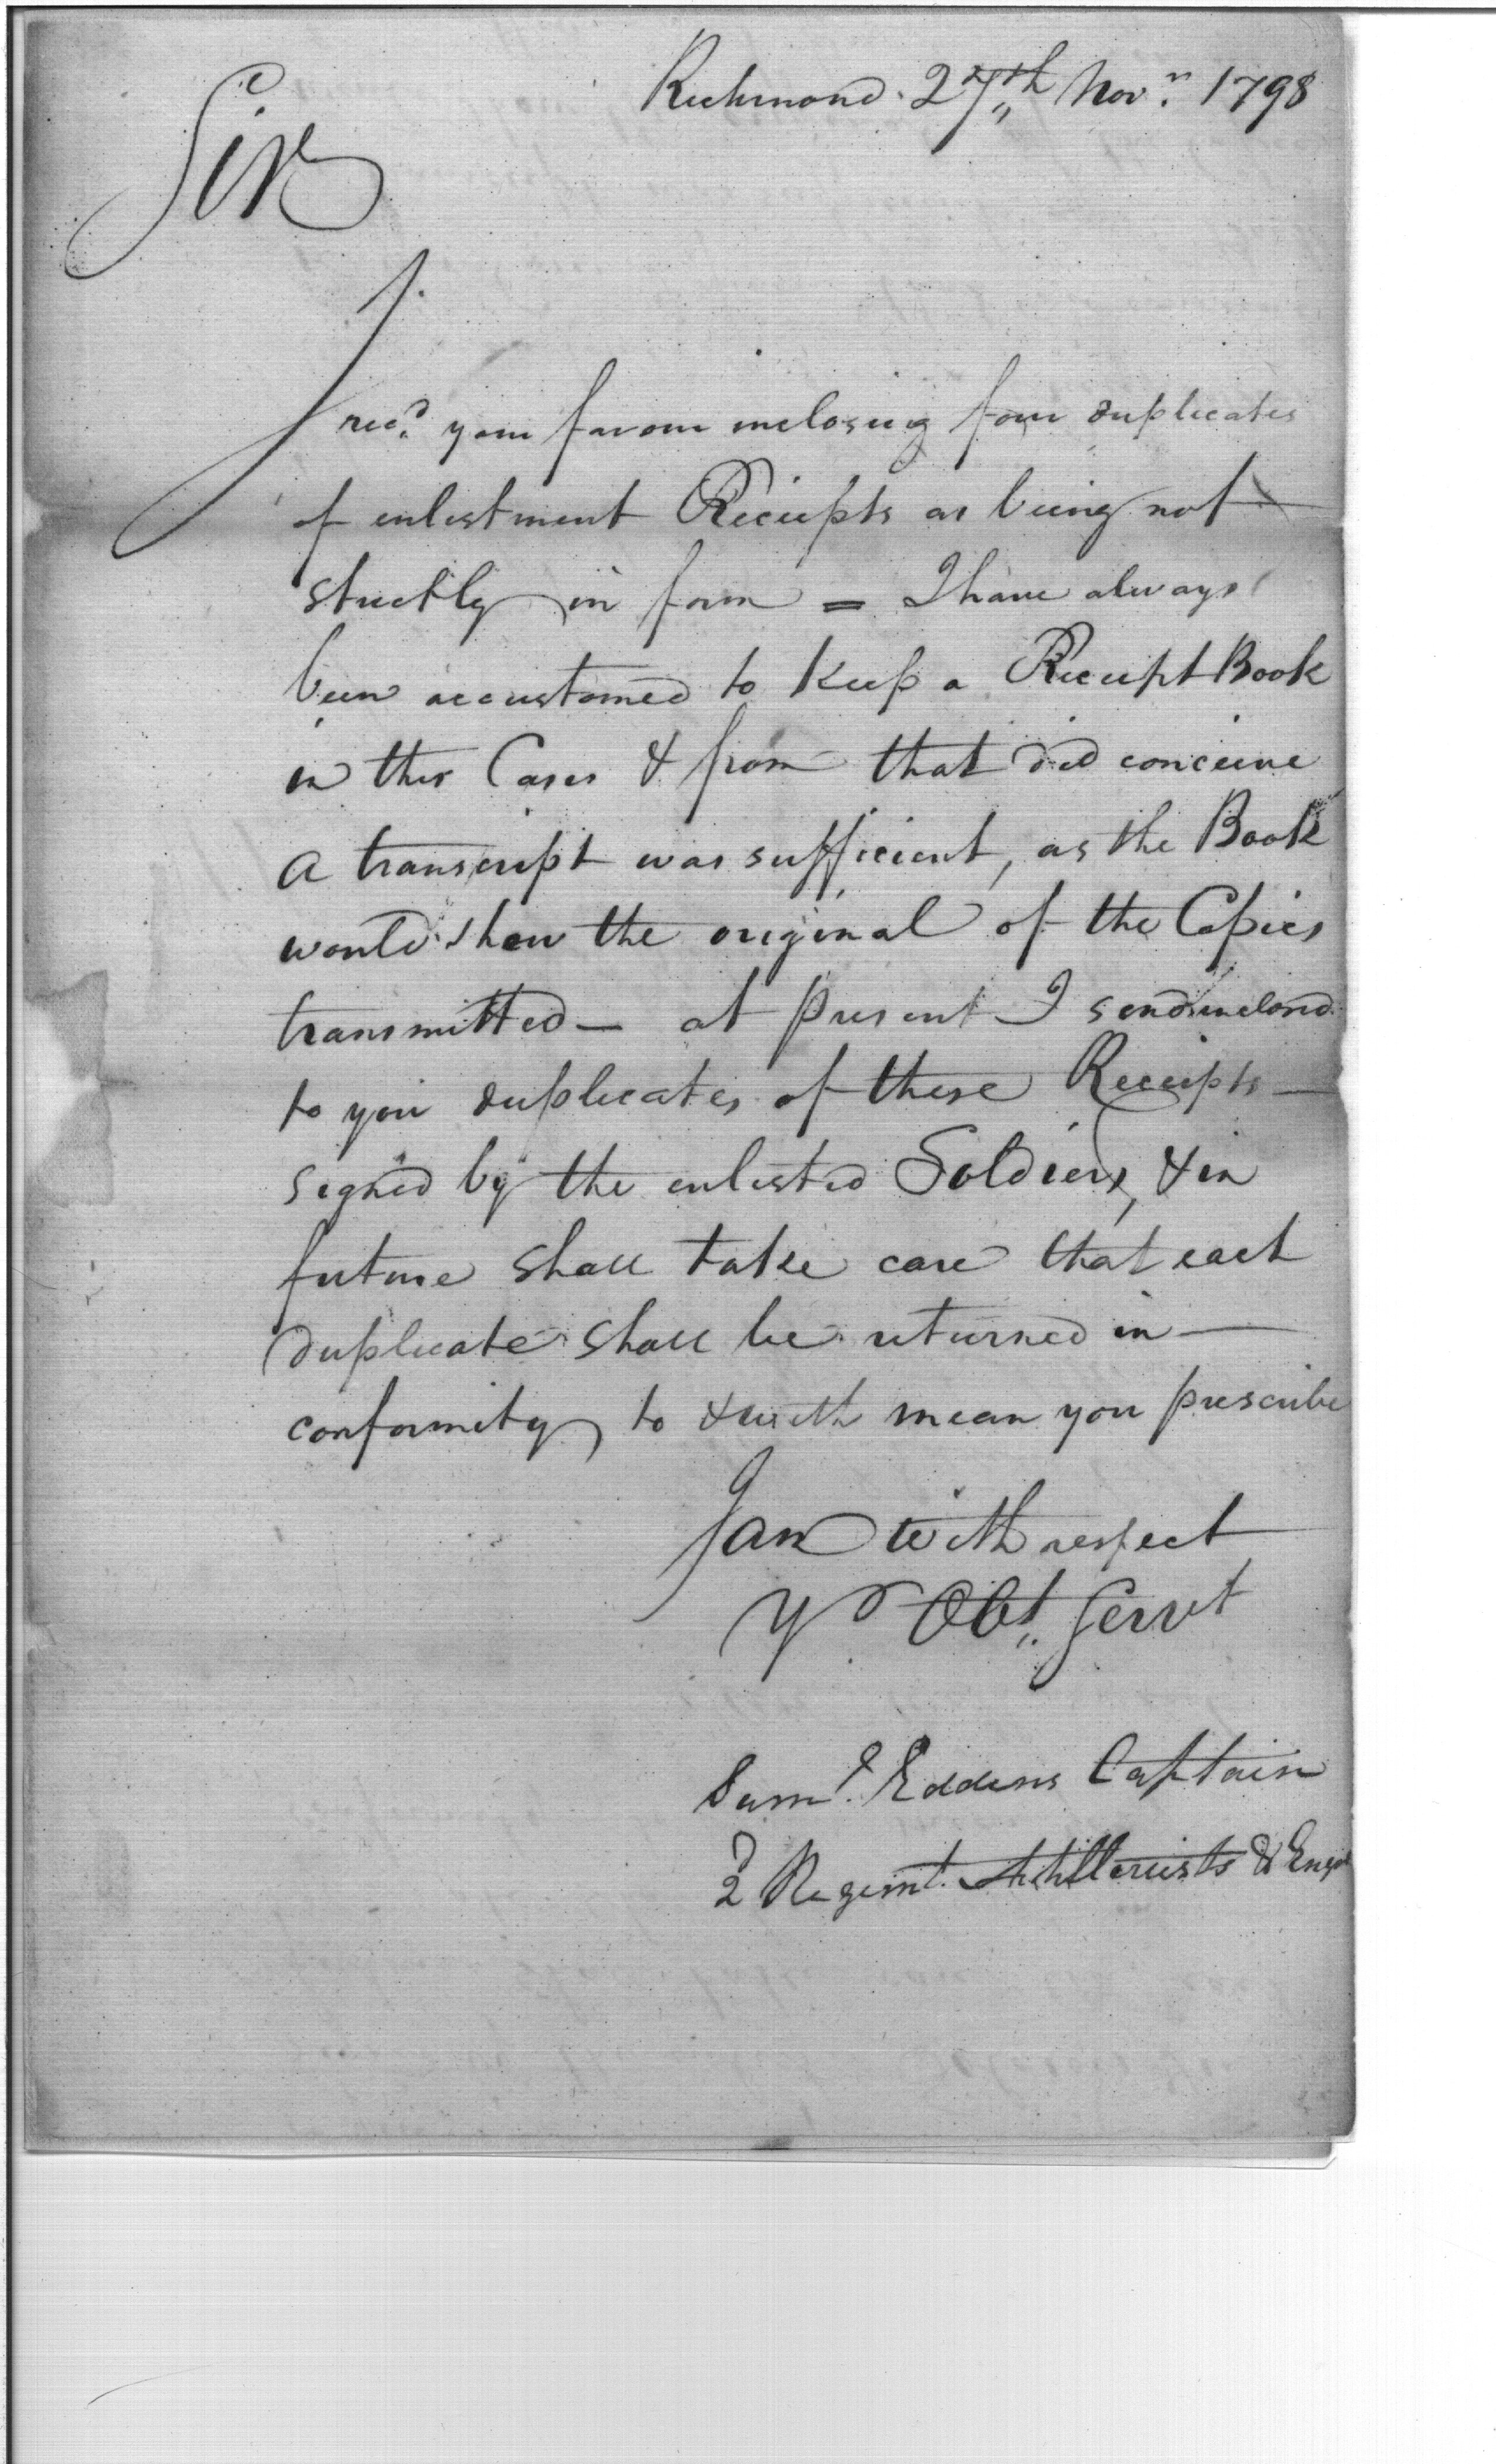 Richmond 27th Novr. 1798
Sir
I
recd. your favour inclosing four duplicates
of enlistment Receipts as being not
strictly in form = I have always
been accustomed to keep a Receipt Book
in this Cases & from that did conceive
a transcript was sufficient, as the Book
would shew the original of the Copies
transmitted — at present I send inclosed
to you duplicates of these Receipts —
signed by the enlisted Soldiers, & in
future shall take care that each
duplicate shall be returned in —
conformity to mean you prescribe
I am with respect
Yr Obt. Servt
Saml. Eddens Captain
2d Regimt. Artillerists & Engrs